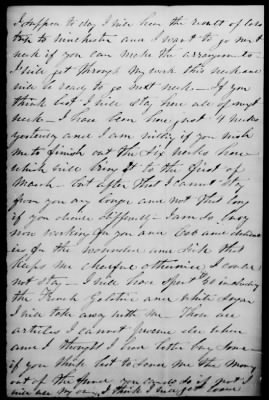 I suppose to day I will hear the result of
trip to Winchester and I want to go next
week if you can make the arrangements
I will get through my work this week and
will be ready to go next week – If you
think best I will stay here all of next
week – I have been here just 4 weeks
yesterday and I am willing if you wish
me to finish out the six weeks here
which will bring it to the first of
March – but after that I cannot stay
from you any longer and not that long
if you decide differently – I am so busy
now working for you and
in for the wounded and sick that
keeps me cheerful otherwise I could
not stay – I will have spent $60 including
the French Gelatine and white sugar
I will take away with me These are
articles I cannot procure elsewhere
and I thought I had better buy some –
if you think best to send me the money
out of the fund you can do so if not I
will use my own, I think I will get some